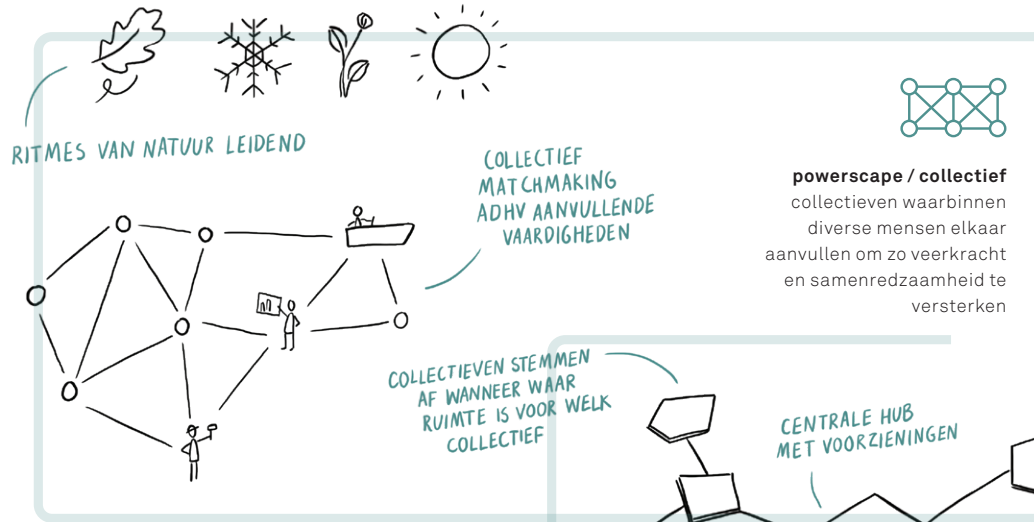 RITMES VAN NATUUR LEIDEND
COLLECTIEF
MATCHMAKING
ADHV AANVULLENDE
VAARDIGHEDEN
powerscape / collectief
collectieven waarbinnen
diverse mensen elkaar
aanvullen om zo veerkracht
en samenredzaamheid te
versterken
COLLECTIEVEN STEMMEN
AF WANNEER WAAR
RUIMTE IS VOOR WELK
COLLECTIEF
CENTRALE HUB
MET VOORZIENINGEN